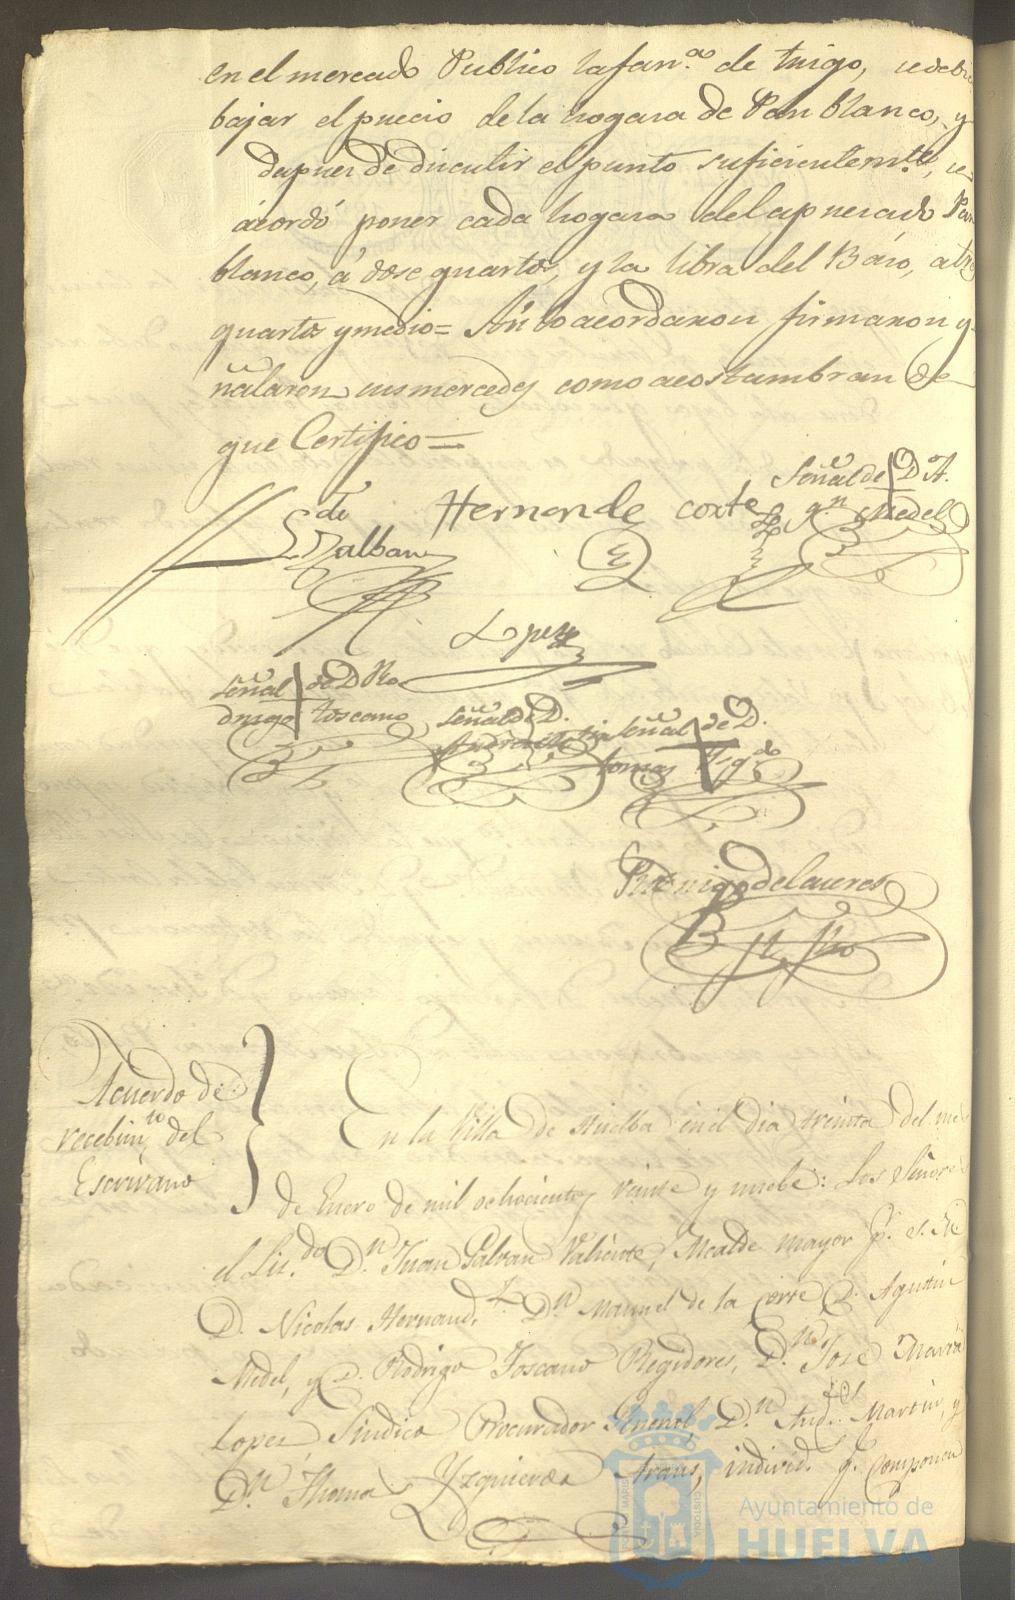 en el mercado Publico la fan.ª de trigo, se debia
bajar el precio de la hogasa de Pan blanco, y
despues de discutir el punto suficientem.te, se
acordó poner cada hogasa del espresado Pan
blanco, á dose quartos, y la libra del Baso, a tres
quartos y medio= Asi lo acordaron firmaron y se
ñalaron sus mercedes como acostumbran de
que Certifico=
Galban
Hernende
corte
Señal de D. A.
Medel
Lopez
Señal de D Ro
drigo toscano
Señal de D.
Andres Martin
Señal de D.
tomas Yzq.do
Acuerdo de
recebim.to del
Escrivano
En la Villa de Huelba en el dia treinta del mes
de Enero de mil ochocientos veinte y nuebe: Los Señores
el Lic.do D.n Juan Galvan Valiente, Alcalde mayor p.r S. M.
D. Nicolas Hernand.z D.n Manuel de la Corte D. Agustin
Medel, y D. Rodrigo Toscano Regidores, D.n Jose Maria
Lopez Sindico Procurador General, D.n And.s Martin, y
D.n Thomas Yzquierdo Arans, individ.s q.e componen
Ayuntamiento de
HUELVA